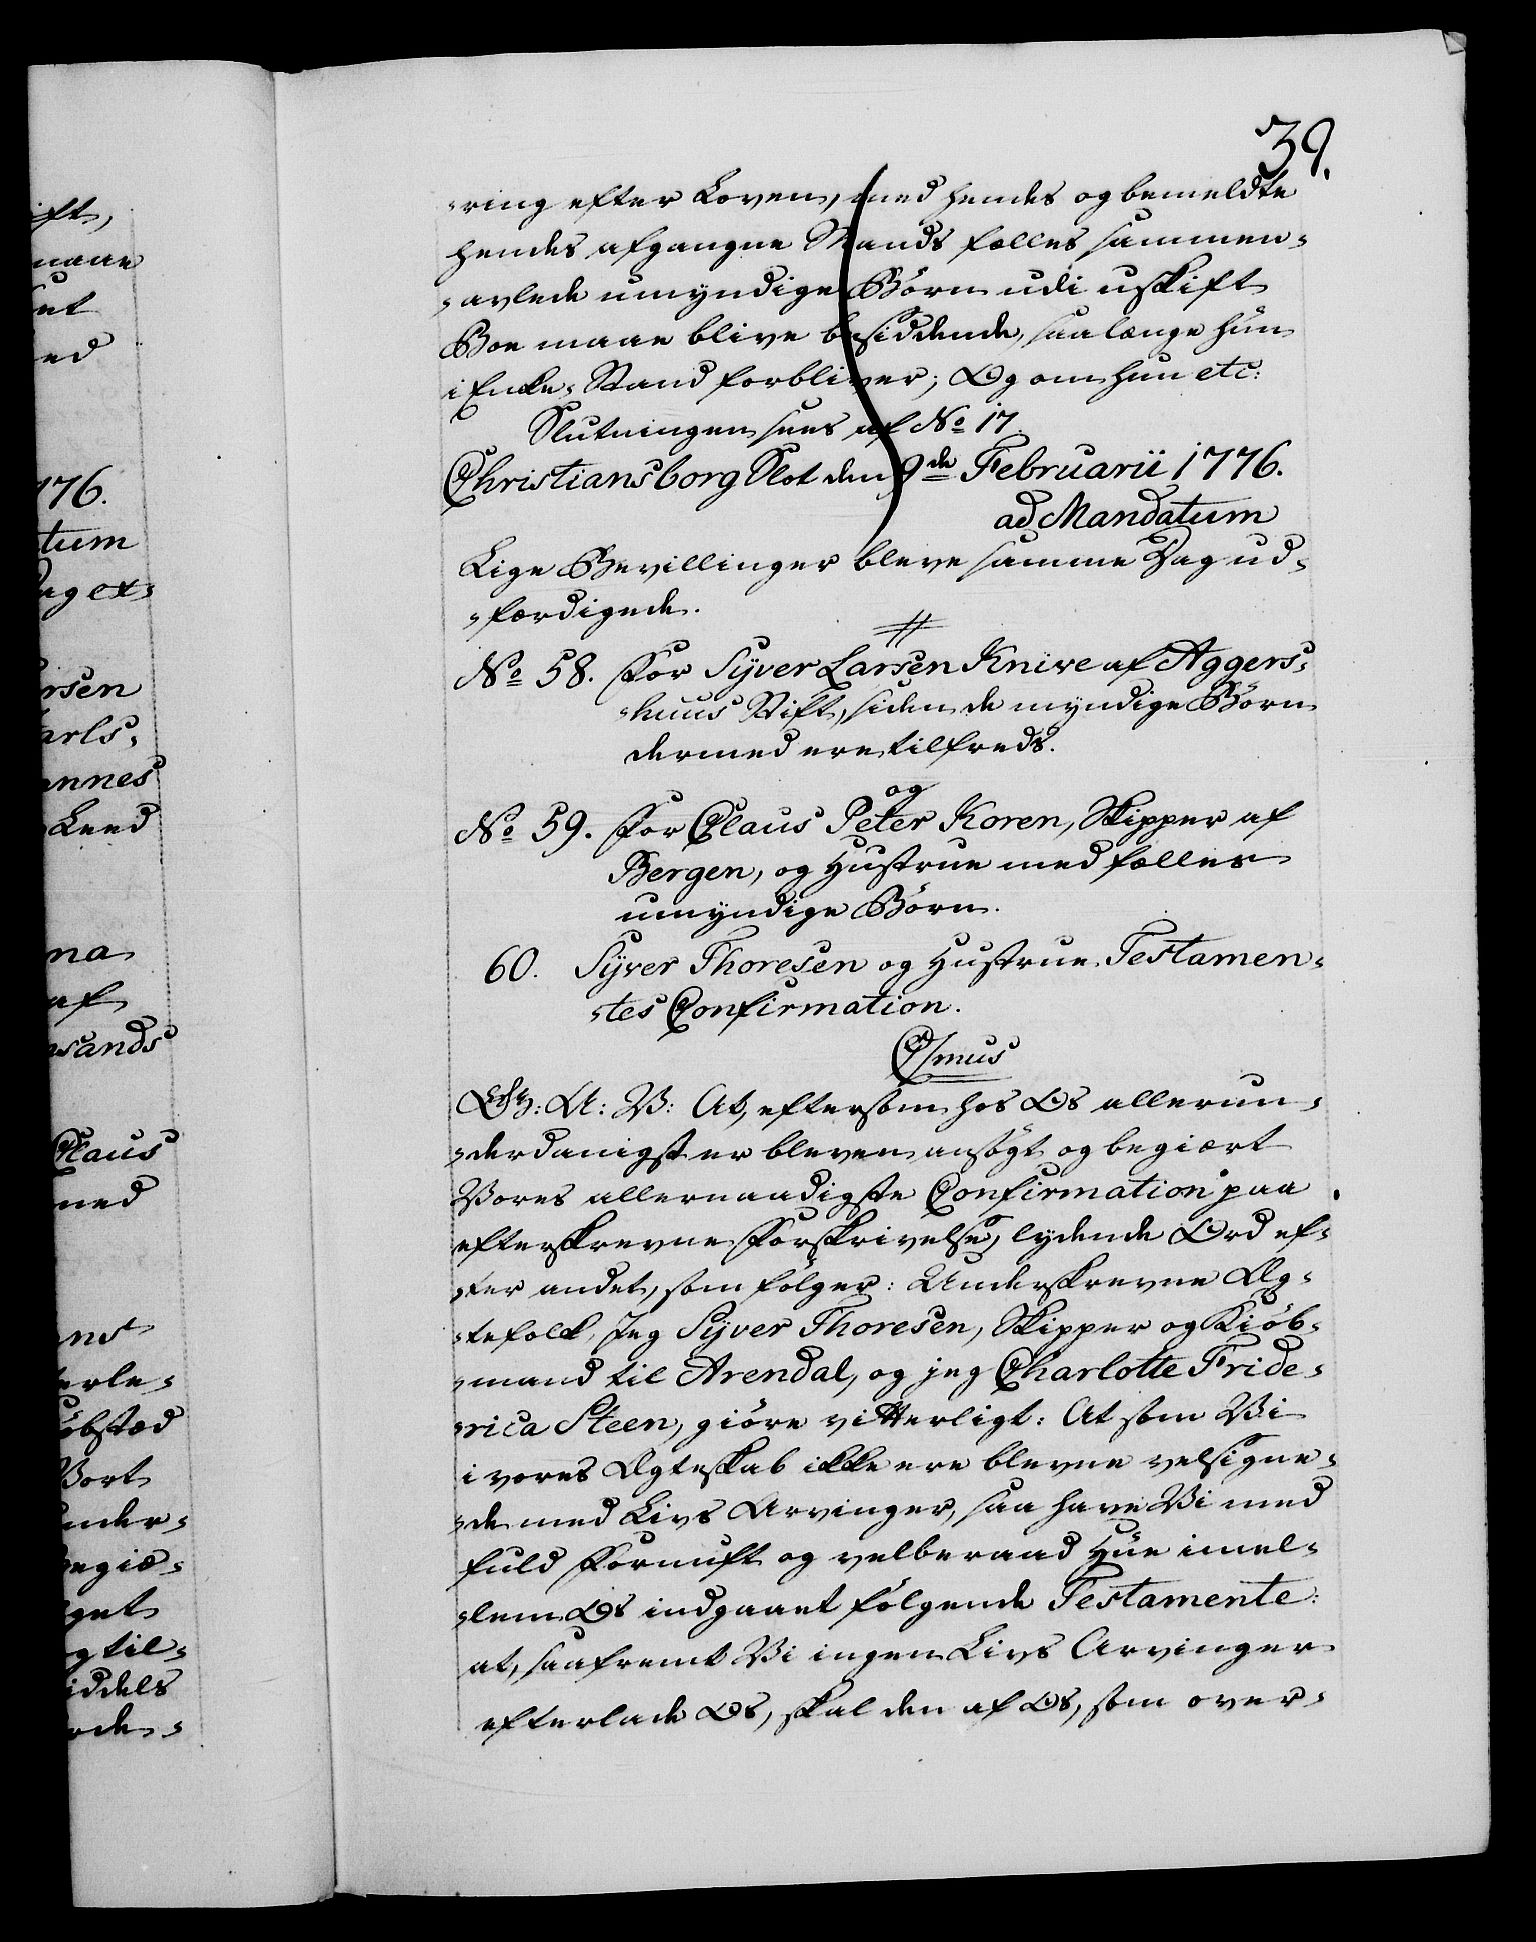 39.
-ring efter Loven, med hendes og bemeldte
hendes afgangne Mands fælles sammen-
-avlede umyndige Börn udi uskift
Boe maae blive besiddende, saa længe hun
i Enke-Stand forbliver; Og om hun etc:
Slutningen sees af No 17
Christiansborg Slot den 9de Februarii 1776.
ad Mandatum
Lige Bevillinger bleve samme Dag ud-
-færdigede.
No 58. For Syver Larsen Knive af Aggers-
-huus Stift, siden de myndige Börn
dermed ere tilfreds.
og
No 59. For Claus Peter Koren, Skipper af
Bergen, og Hustrue med fælles
umyndige Börn.
60. Syver Thoresen og Hustrue Testamen-
-tes Confirmation.
C7mus
G: A: V: At, eftersom hos Os allerun-
-derdanigst er bleven ansögt og begiært
Vores allernaadigste Confirmation paa
efterskrevne Forskrivelse, lydende Ord ef-
-ter andet, som fölger: Underskrevne Æg-
-tefolk, Jeg Syver Thoresen, Skipper og Kiöb-
-mand til Arendal, og jeg Charlotte Fride-
-rica Steen, giöre vitterligt: At som Vi
i vores Ægteskab ikke ere blevne velsigne-
-de med Livs Arvinger, saa have Vi med
fuld Fornuft og velberaad Hue imel-
-lem Os indgaaet fölgende Testamente:
at, saafremt Vi ingen Livs Arvinger
efterlade Os, skal den af Os, som over-
ift,
maae
et
ed
176.
tum
ag ex-
rsen
arls-
annes
Leed
na
af
sands
Claus
med
erle-
öbstæd
Vort
nder-
begiæ-
get
g til-
iddels
rde-